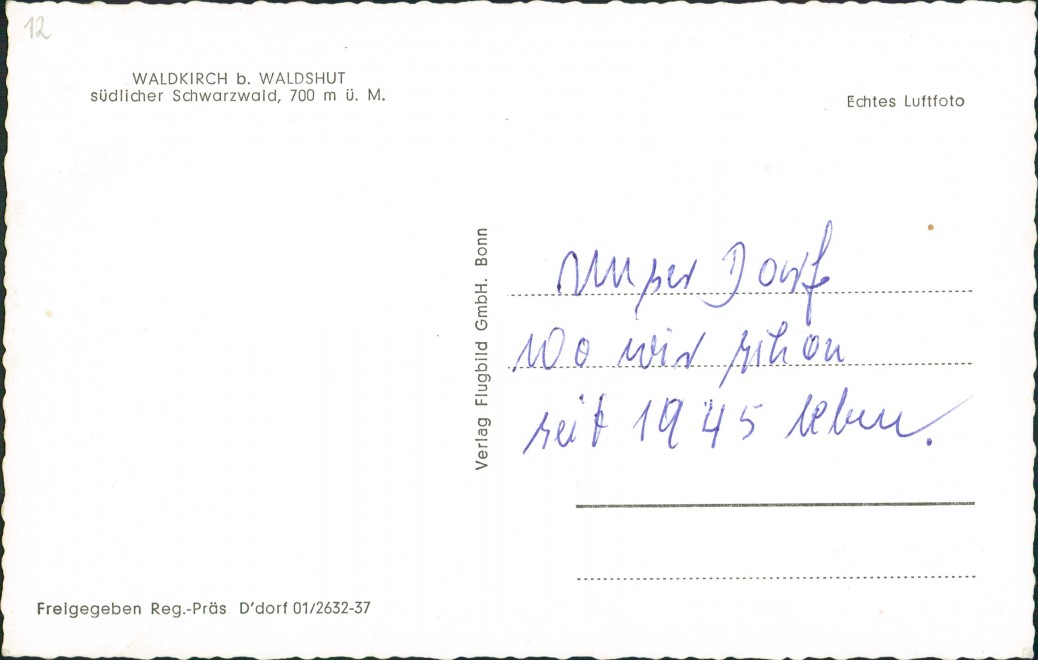 12
WALDKIRCH b. WALDSHUT
südlicher Schwarzwald, 700 m ü. M.
Echtes Luftfoto
Verlag Flugbild GmbH. Bonn
Unser Dorf
wo wir schon
seit 1945 leben.
Freigegeben Reg.-Präs D'dorf 01/2632-37